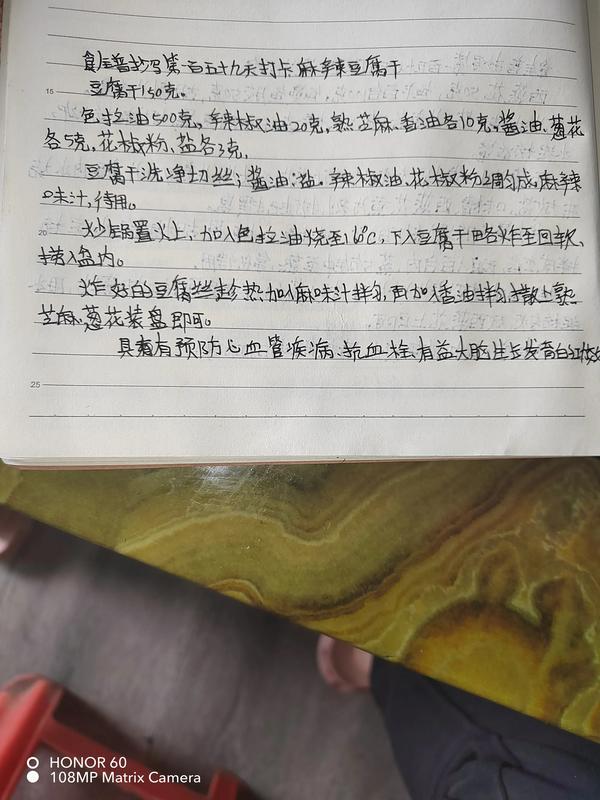 食全普抄写第一百五十九天打卡麻辣豆腐干
15
豆腐干150克。
色拉油500克,辣椒油20克,熟芝麻、香油各10克,酱油、葱花
各5克,花椒粉、盐各3克,
豆腐干洗净切丝;酱油、盐、辣椒油、花椒粉调成麻辣
味汁,待用。
20
炒锅置火上,加入色拉油烧至160℃,下入豆腐干略炸至回软、
捞入盘内。
炸好的豆腐丝趁热加入麻味汁拌匀,再加入香油拌匀,撒上熟
芝麻、葱花装盘即可。
具有预防心血管疾病、抗血栓、有益大脑生长发育的功效
25
HONOR 60
108MP Matrix Camera